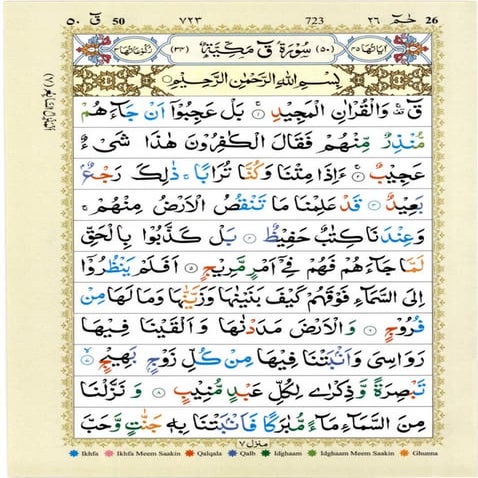 ٥٠ ق 50 ٧٢٣ 723 ٢٦ حٰمٓ 26
اٰیَاتُهَا ٤٥ (٥٠) سُوْرَةُ قٓ مَكِّیَّةٌ (٣٤) رُكُوْعَاتُهَا ٣
بِسْمِ اللّٰهِ الرَّحْمٰنِ الرَّحِیْمِ
قٓ ۚ وَالْقُرْاٰنِ الْمَجِیْدِ ۚ۝١ بَلْ عَجِبُوْۤا اَنْ جَآءَهُمْ
مُّنْذِرٌ مِّنْهُمْ فَقَالَ الْكٰفِرُوْنَ هٰذَا شَیْءٌ
عَجِیْبٌ ۚ۝٢ ءَاِذَا مِتْنَا وَكُنَّا تُرَابًا ۚ ذٰلِكَ رَجْعٌۢ
بَعِیْدٌ ۝٣ قَدْ عَلِمْنَا مَا تَنْقُصُ الْاَرْضُ مِنْهُمْ ۚ
وَعِنْدَنَا كِتٰبٌ حَفِیْظٌ ۝٤ بَلْ كَذَّبُوْا بِالْحَقِّ
لَمَّا جَآءَهُمْ فَهُمْ فِیْۤ اَمْرٍ مَّرِیْجٍ ۝٥ اَفَلَمْ یَنْظُرُوْۤا
اِلَی السَّمَآءِ فَوْقَهُمْ كَیْفَ بَنَیْنٰهَا وَزَیَّنّٰهَا وَمَا لَهَا مِنْ
فُرُوْجٍ ۝٦ وَالْاَرْضَ مَدَدْنٰهَا وَاَلْقَیْنَا فِیْهَا
رَوَاسِیَ وَاَنْۢبَتْنَا فِیْهَا مِنْ كُلِّ زَوْجٍۭ بَهِیْجٍ ۙ۝٧
تَبْصِرَةً وَّذِكْرٰی لِكُلِّ عَبْدٍ مُّنِیْبٍ ۝٨ وَنَزَّلْنَا
مِنَ السَّمَآءِ مَآءً مُّبٰرَكًا فَاَنْۢبَتْنَا بِهٖ جَنّٰتٍ وَّحَبَّ
منزل ٧
Ikhfa Ikhfa Meem Saakin Qalqala Qalb Idghaam Idghaam Meem Saakin Ghunna